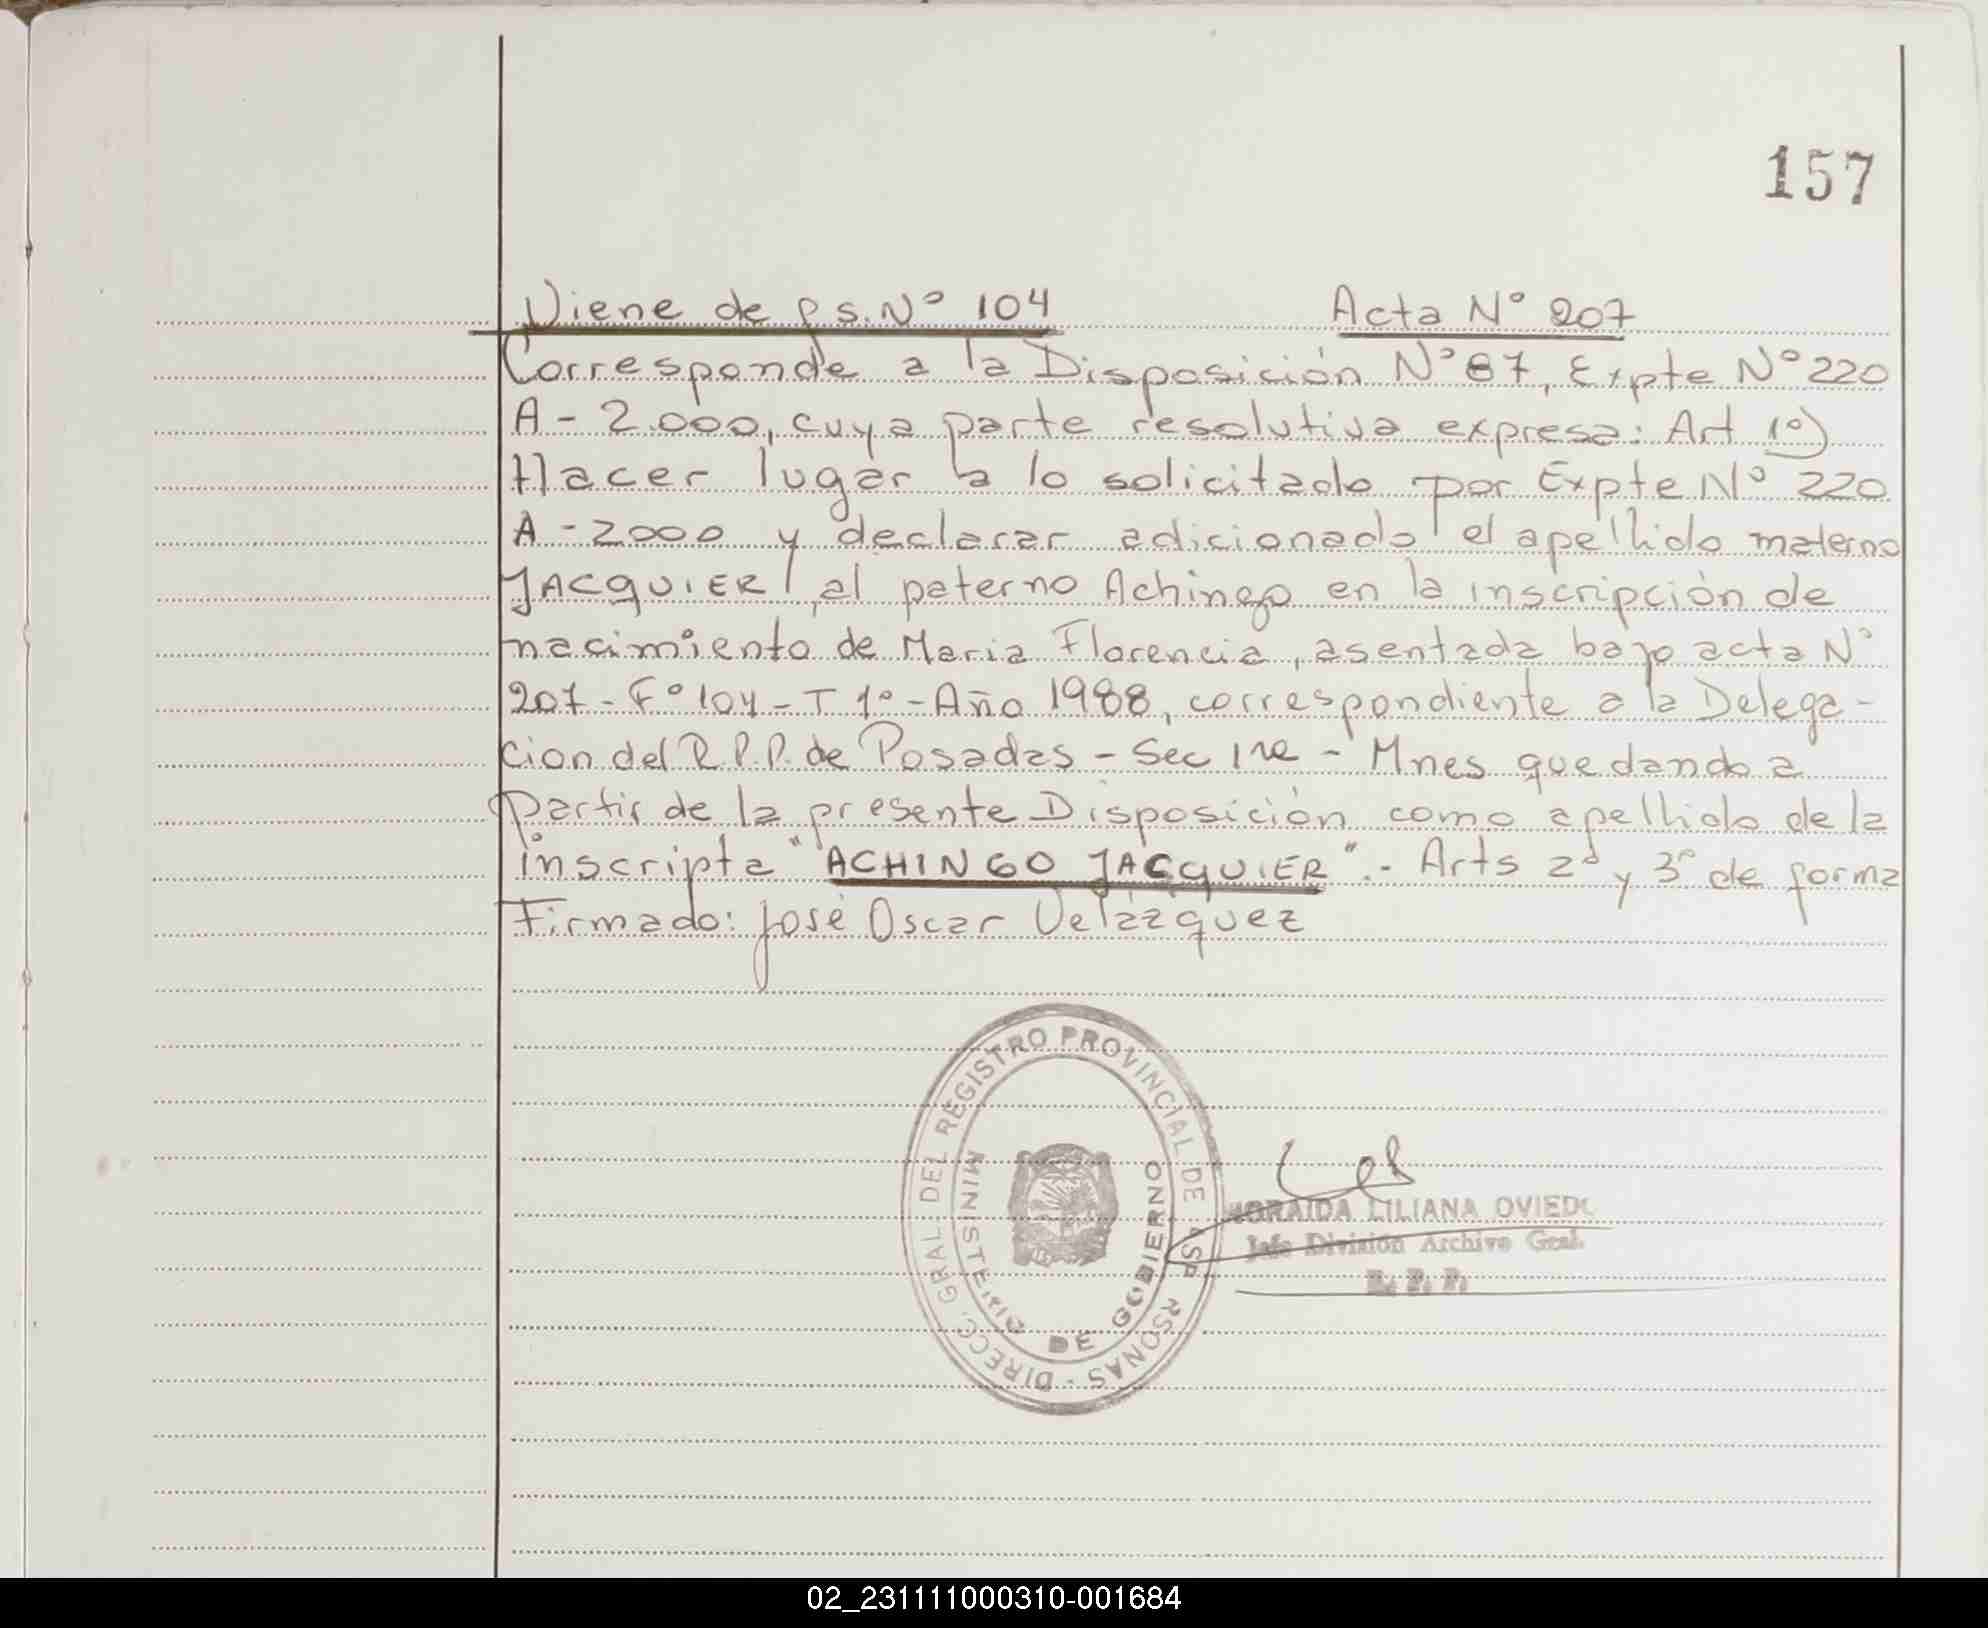 157
Viene de fs. Nº 104 Acta Nº 207
Corresponde a la Disposición Nº 87, Expte Nº 220
A - 2.000, cuya parte resolutiva expresa: Art 1º)
Hacer lugar a lo solicitado por Expte Nº 220
A - 2000 y declarar adicionado el apellido materno
JACQUIER, al paterno Achingo en la inscripción de
nacimiento de Maria Florencia, asentada bajo acta Nº
207 - Fº 104 - T 1º - Año 1988, correspondiente a la Delega-
cion del R.P.P. de Posadas - Sec 1ra - Mnes quedando a
partir de la presente Disposición como apellido de la
inscripta "ACHINGO JACQUIER".- Arts 2º y 3º de forma
Firmado: José Oscar Velázquez
DIRECC. GRAL. DEL REGISTRO PROVINCIAL DE RSONAS -
MINISTERIO DE GOBIERNO
LILIANA OVIEDO
Jefe División Archivo Gral.
R. P. P.
02_231111000310-001684